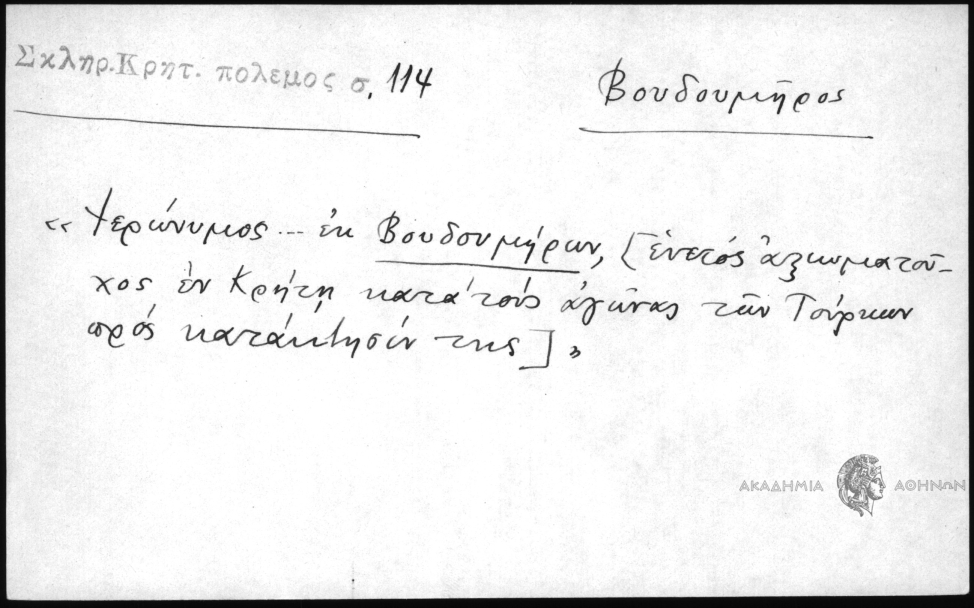 Σκληρ. Κρητ. πολεμος σ. 114
Βουδουμῆρος
« Ἱερώνυμος ... ἐκ Βουδουμήρων, [ἐνετός ἀξιωματοῦ-
χος ἐν Κρήτῃ κατά τούς ἀγῶνας τῶν Τούρκων
πρός κατάκτησίν της] »
ΑΚΑΔΗΜΙΑ ΑΘΗΝΩΝ